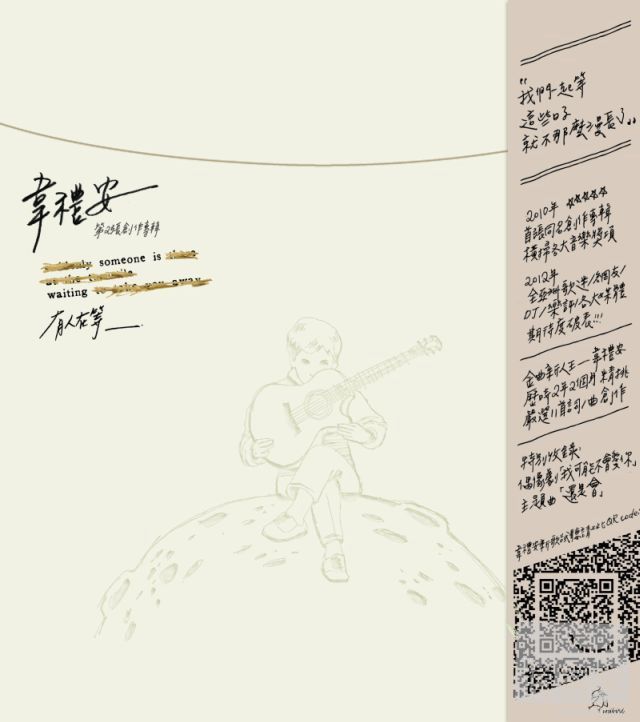 韋禮安
第2張創作專輯
someone is
waiting
有人在等___.
"我們一起等
這些日子
就不那麼漫長了"
2010年 ☆☆☆☆☆
首張同名創作專輯
橫掃各大音樂獎項
2012年
全亞洲歌迷/網友/
DJ/樂評/各大媒體
期待度破表!!!
金曲新人王—韋禮安
歷時2年2個月 精挑
嚴選11首詞/曲創作
特別收錄
偶像劇「我可能不會愛你」
主題曲「還是會」
韋禮安新歌試聽請上QR code: